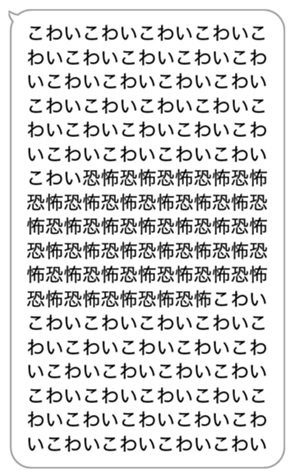 こわいこわいこわいこわいこ
わいこわいこわいこわいこわ
いこわいこわいこわいこわい
こわいこわいこわいこわいこ
わいこわいこわいこわいこわ
いこわいこわいこわいこわい
こわい恐怖恐怖恐怖恐怖恐怖
恐怖恐怖恐怖恐怖恐怖恐怖恐
怖恐怖恐怖恐怖恐怖恐怖恐怖
恐怖恐怖恐怖恐怖恐怖恐怖恐
怖恐怖恐怖恐怖恐怖恐怖恐怖
恐怖恐怖恐怖恐怖恐怖こわい
こわいこわいこわいこわいこ
わいこわいこわいこわいこわ
いこわいこわいこわいこわい
こわいこわいこわいこわいこ
わいこわいこわいこわいこわ
いこわいこわいこわいこわい